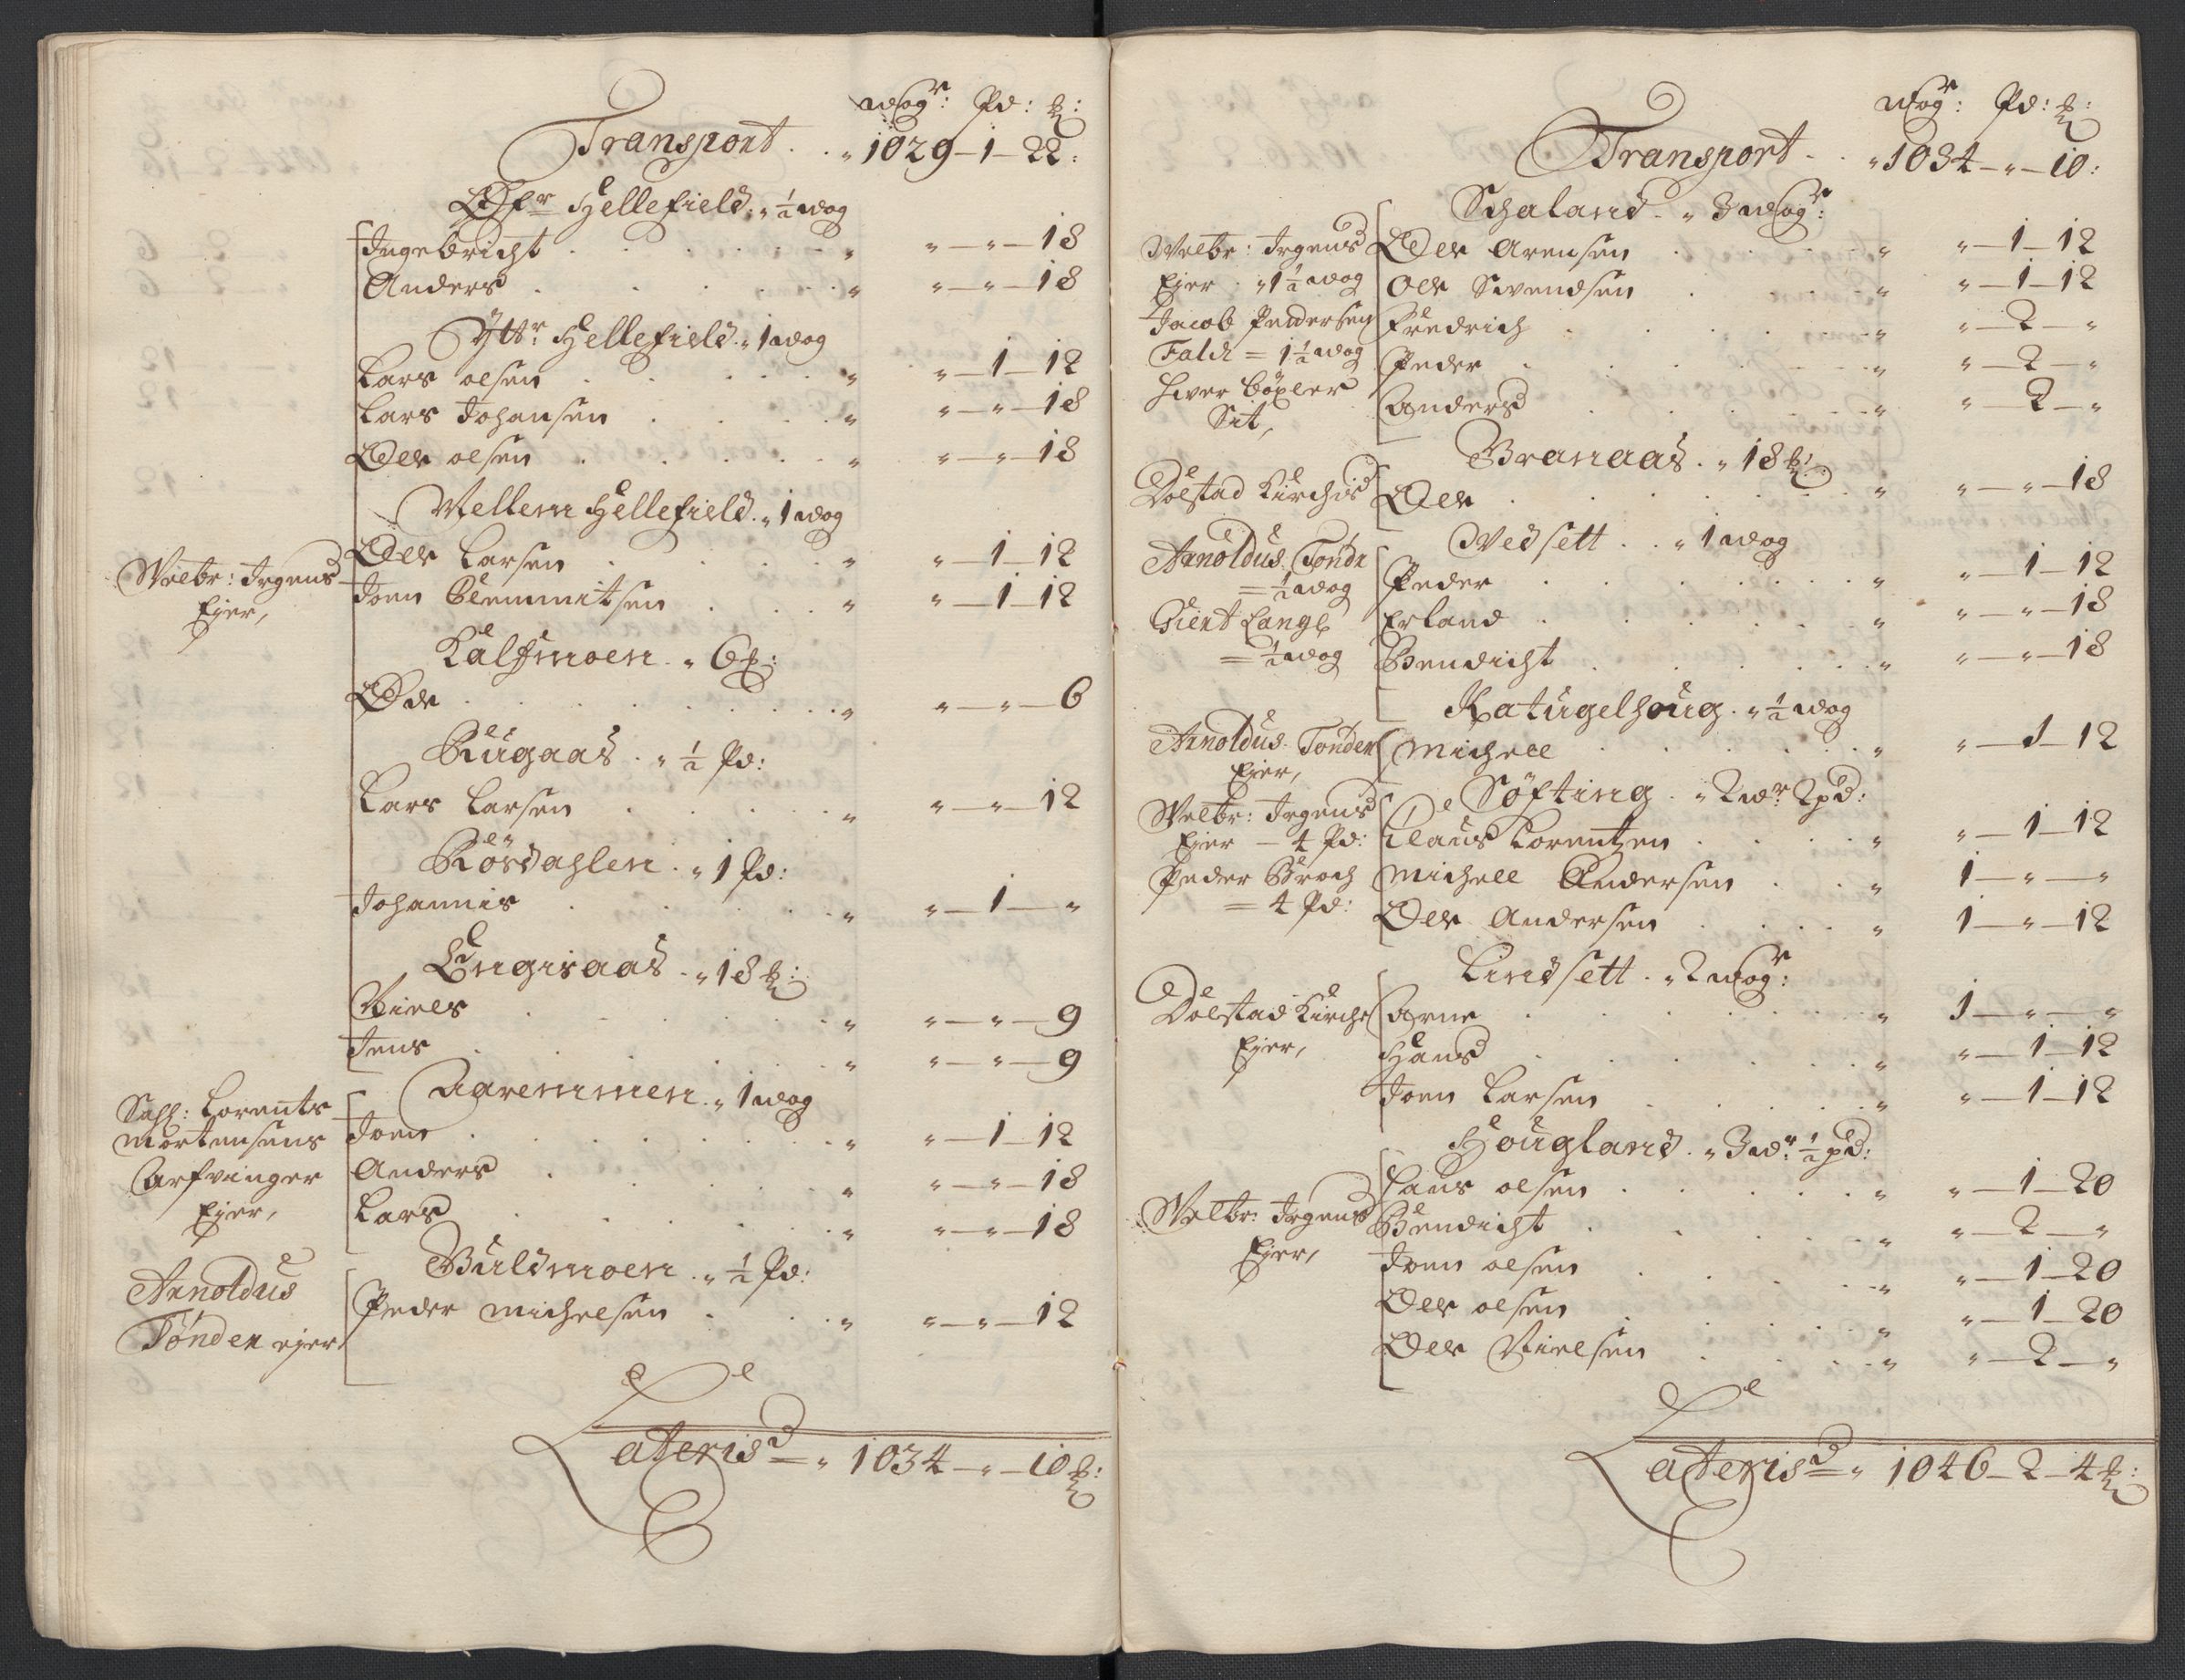 wogr: Pd: ℔:
Transport . . „ 1029 – 1 – 22:
Øfr Hellefield „ ½ wog
Ingebricht . . . „ „ – „ – 18
Anders . . . „ „ – „ – 18
Yttr: Hellefield „ 1 wog
Lars olsen . . . „ „ – 1 – 12
Lars Johansen . . . „ „ – „ – 18
Ole olsen . . . „ „ – „ – 18
Mellem Hellefield „ 1 wog
Ole Larsen . . . „ „ – 1 – 12
Welbr: Irgens
Ejer,
Joen Clemmitsen . . . „ „ – 1 – 12
Kalfmoen „ 6 ℔:
Ole . . . „ „ – „ – 6
Rugaas . „ ½ Pd:
Lars Larsen . . . „ „ – „ – 12
Rösdahlen . „ 1 Pd:
Johannis . . . „ „ – 1 – „
Engisaas . „ 18 ℔:
Niels . . . „ „ – „ – 9
Jens . . . „ „ – „ – 9
Aaremmen . „ 1 wog
Sahl: Lorents
Mortensens
Arfvinger
Ejer,
Joen . . . „ „ – 1 – 12
Anders . . . „ „ – „ – 18
Lars . . . „ „ – „ – 18
Buldmoen . „ ½ Pd:
Arnoldus
Tönder ejer
Peder Michelsen . . . „ „ – „ – 12
Lateris = „ 1034 – „ – 10 ℔:
wogr: Pd: ℔:
Transport . . „ 1034 – „ – 10:
Schaland . „ 3 wogr:
Welbr: Irgens
Ejer . „ 1½ wog
Jacob Pedersen
Falch = 1½ wog
hver böxler
Sit,
Ole Arensen . . . „ „ – 1 – 12
Ole Svendsen . . . „ „ – 1 – 12
Fredrich . . . „ „ – 2 – „
Peder . . . „ „ – 2 – „
Anders . . . „ „ – 2 – „
Branaas . „ 18 ℔:
Dolstad Kirchis
Ole . . . „ „ – „ – 18
Vedsett . . „ 1 wog
Arnoldus Töndr
= ½ wog
Giert Lange
= ½ wog
Peder . . . „ „ – 1 – 12
Erland . . . „ „ – „ – 18
Bendicht . . . „ „ – „ – 18
Katugelhoug . „ ½ wog
Arnoldus Tönder
Ejer,
Michell . . . „ „ – 1 – 12
Söfting . „ 2 wr 2 pd:
Welbr: Irgens
Ejer – 4 Pd:
Peder Broch
= 4 Pd:
Claus Lorentzen . . . „ „ – 1 – 12
Michell Andersen . . „ 1 – „ – „
Ole Andersen . . . „ 1 – „ – 12
Lindsett . „ 2 wogr:
Dolstad Kirche
Ejer,
Arne . . . „ 1 – „ – „
Hans . . . „ „ – 1 – 12
Joen Larsen . . . „ „ – 1 – 12
Hougland . „ 3 wr: ½ pd:
Welbr: Irgens
Ejer,
Hans olsen . . . „ „ – 1 – 20
Bendicht . . . „ „ – 2 – „
Joen olsen . . . „ „ – 1 – 20
Ole olsen . . . „ „ – 1 – 20
Ole Nielsen . . . „ „ – 2 – „
Lateris = „ 1046 – 2 – 4 ℔: